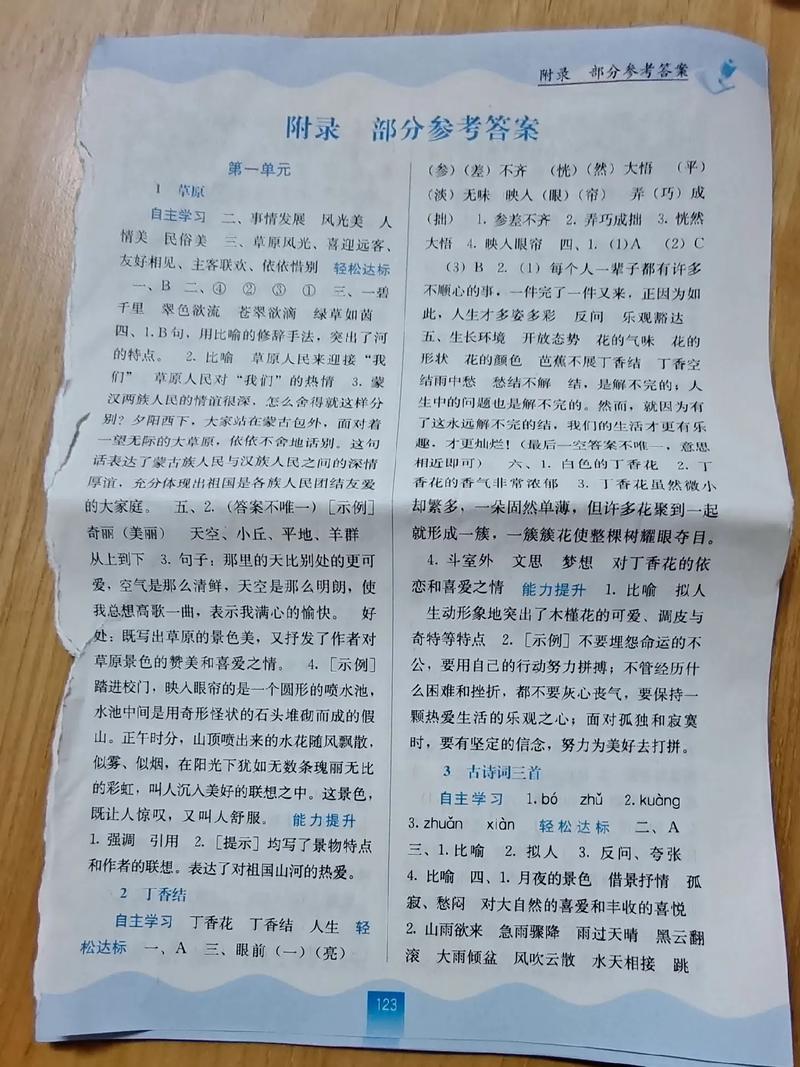 附录 部分参考答案
附录 部分参考答案
第一单元
1 草原
自主学习 二、事情发展 风光美 人
情美 民俗美 三、草原风光、喜迎远客、
友好相见、主客联欢、依依惜别 轻松达标
一、B 二、④ ② ③ ① 三、一碧
千里 翠色欲流 苍翠欲滴 绿草如茵
四、1.B句，用比喻的修辞手法，突出了河
的特点。 2. 比喻 草原人民来迎接“我
们” 草原人民对“我们”的热情 3. 蒙
汉两族人民的情谊很深，怎么舍得就这样分
别？夕阳西下，大家站在蒙古包外，面对着
一望无际的大草原，依依不舍地话别。这句
话表达了蒙古族人民与汉族人民之间的深情
厚谊，充分体现出祖国是各族人民团结友爱
的大家庭。 五、2.（答案不唯一）［示例］
奇丽（美丽） 天空、小丘、平地、羊群
从上到下 3. 句子：那里的天比别处的更可
爱，空气是那么清鲜，天空是那么明朗，使
我总想高歌一曲，表示我满心的愉快。 好
处：既写出草原的景色美，又抒发了作者对
草原景色的赞美和喜爱之情。 4.［示例］
踏进校门，映入眼帘的是一个圆形的喷水池，
水池中间是用奇形怪状的石头堆砌而成的假
山。正午时分，山顶喷出来的水花随风飘散，
似雾、似烟，在阳光下犹如无数条瑰丽无比
的彩虹，叫人沉入美好的联想之中。这景色，
既让人惊叹，又叫人舒服。 能力提升
1. 强调 引用 2.［提示］均写了景物特点
和作者的联想。表达了对祖国山河的热爱。
2 丁香结
自主学习 丁香花 丁香结 人生 轻
松达标 一、A 三、眼前（一）（亮）
（参）（差）不齐 （恍）（然）大悟 （平）
（淡）无味 映入（眼）（帘） 弄（巧）成
（拙） 1. 参差不齐 2. 弄巧成拙 3. 恍然
大悟 4. 映入眼帘 四、1.（1）A （2）C
（3）B 2.（1）每个人一辈子都有许多
不顺心的事，一件完了一件又来，正因为如
此，人生才多姿多彩 反问 乐观豁达
五、生长环境 开放态势 花的气味 花的
形状 花的颜色 芭蕉不展丁香结 丁香空
结雨中愁 愁结不解 结，是解不完的；人
生中的问题也是解不完的。然而，就因为有
了这永远解不完的结，我们的生活才更有乐
趣，才更灿烂！（最后一空答案不唯一，意思
相近即可） 六、1. 白色的丁香花 2. 丁
香花的香气非常浓郁 3. 丁香花虽然微小
却繁多，一朵固然单薄，但许多花聚到一起
就形成一簇，一簇簇花使整棵树耀眼夺目。
4. 斗室外 文思 梦想 对丁香花的依
恋和喜爱之情 能力提升 1. 比喻 拟人
生动形象地突出了木槿花的可爱、调皮与
奇特等特点 2.［示例］不要埋怨命运的不
公，要用自己的行动努力拼搏；不管经历什
么困难和挫折，都不要灰心丧气，要保持一
颗热爱生活的乐观之心；面对孤独和寂寞
时，要有坚定的信念，努力为美好去打拼。
3 古诗词三首
自主学习 1.bó zhǔ 2.kuàng
3.zhuǎn xiàn 轻松达标 二、A
三、1. 比喻 2. 拟人 3. 反问、夸张
4. 比喻 四、1. 月夜的景色 借景抒情 孤
寂、愁闷 对大自然的喜爱和丰收的喜悦
2. 山雨欲来 急雨骤降 雨过天晴 黑云翻
滚 大雨倾盆 风吹云散 水天相接 跳
123